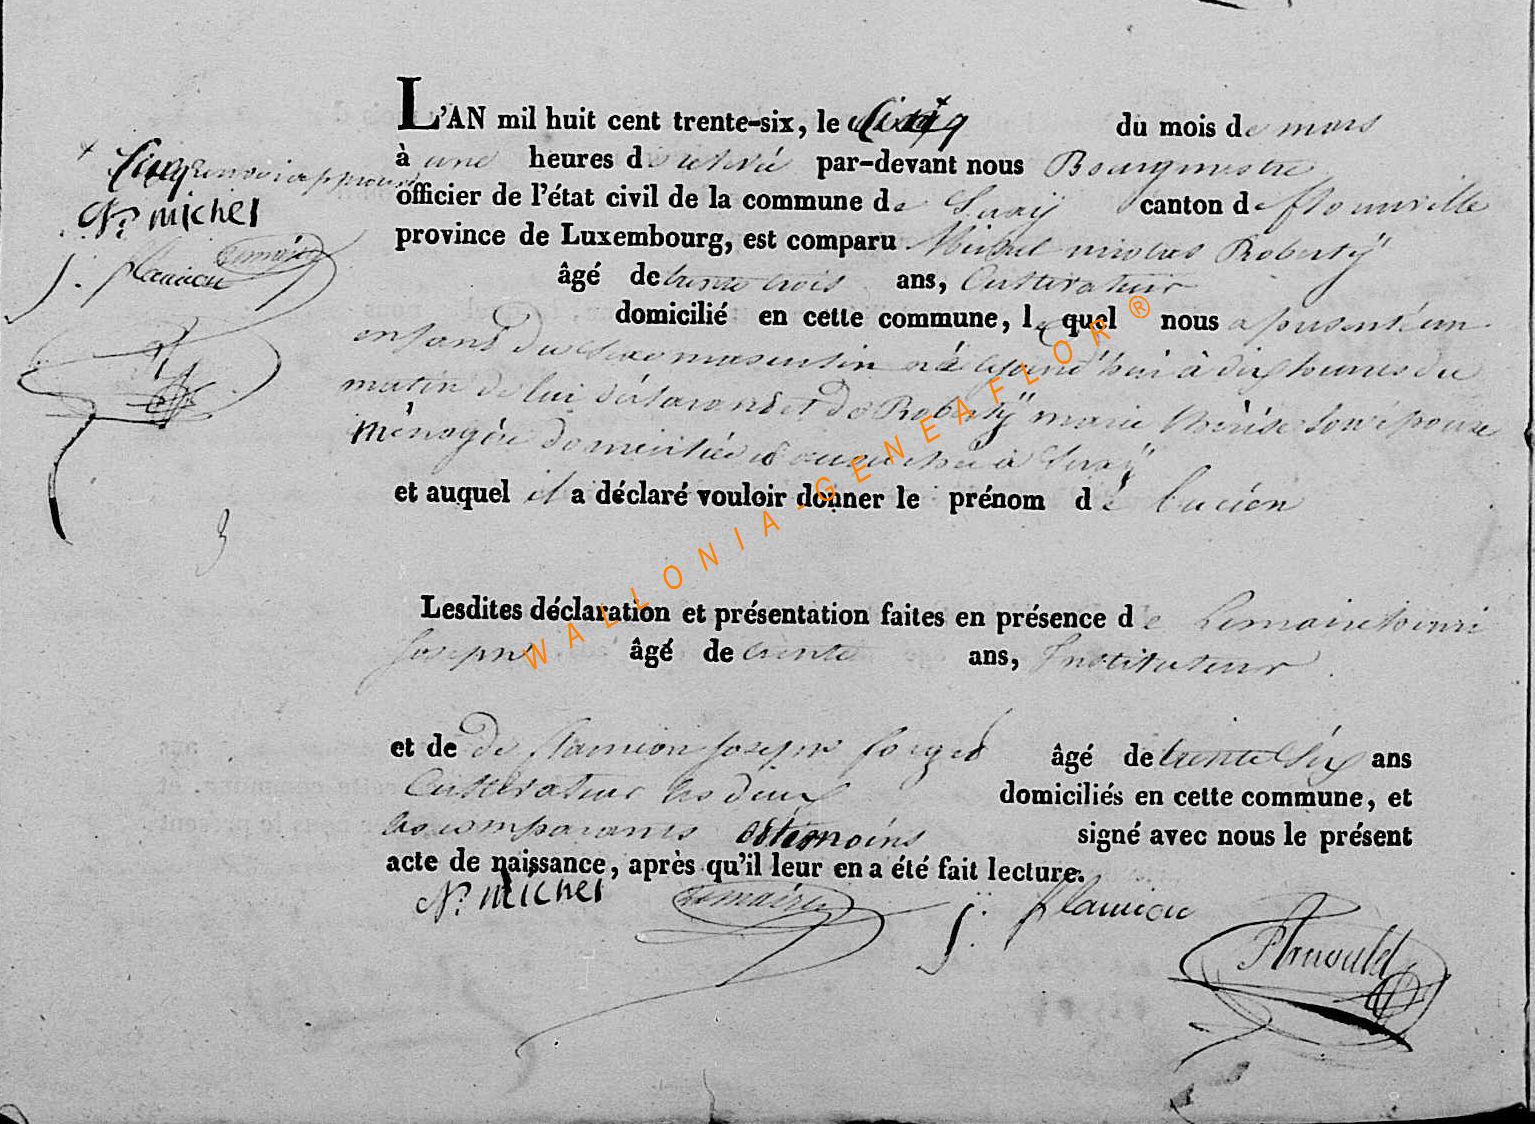 L'AN mil huit cent trente-six, le cinq du mois de mars
à une heures de relevé par-devant nous Bourgmestre
officier de l'état civil de la commune de Suxy canton de florenville
province de Luxembourg, est comparu Michel nicolas Roberty
âgé de trente trois ans, Cultivateur
domicilié en cette commune, lequel nous a présenté un
enfant du sexe masculin né cejourd'hui à dix heures du
matin de lui déclarant et de Roberty marie thérèse son épouse
Ménagère domiciliée à
et auquel il a déclaré vouloir donner le prénom de lucien
Lesdites déclaration et présentation faites en présence de Lemaire henri
Joseph âgé de trente ans, Instituteur
et de de flamion Joseph âgé de trente six ans
Cultivateur les deux domiciliés en cette commune, et
les comparants et témoins signé avec nous le présent
acte de naissance, après qu'il leur en a été fait lecture.
N. michel Lemaire j. flamion
Arnould
+ Cinq renvoi approuvé
N. michel
Lemaire
j. flamion
WALLONIA-GENEAFLOR ®